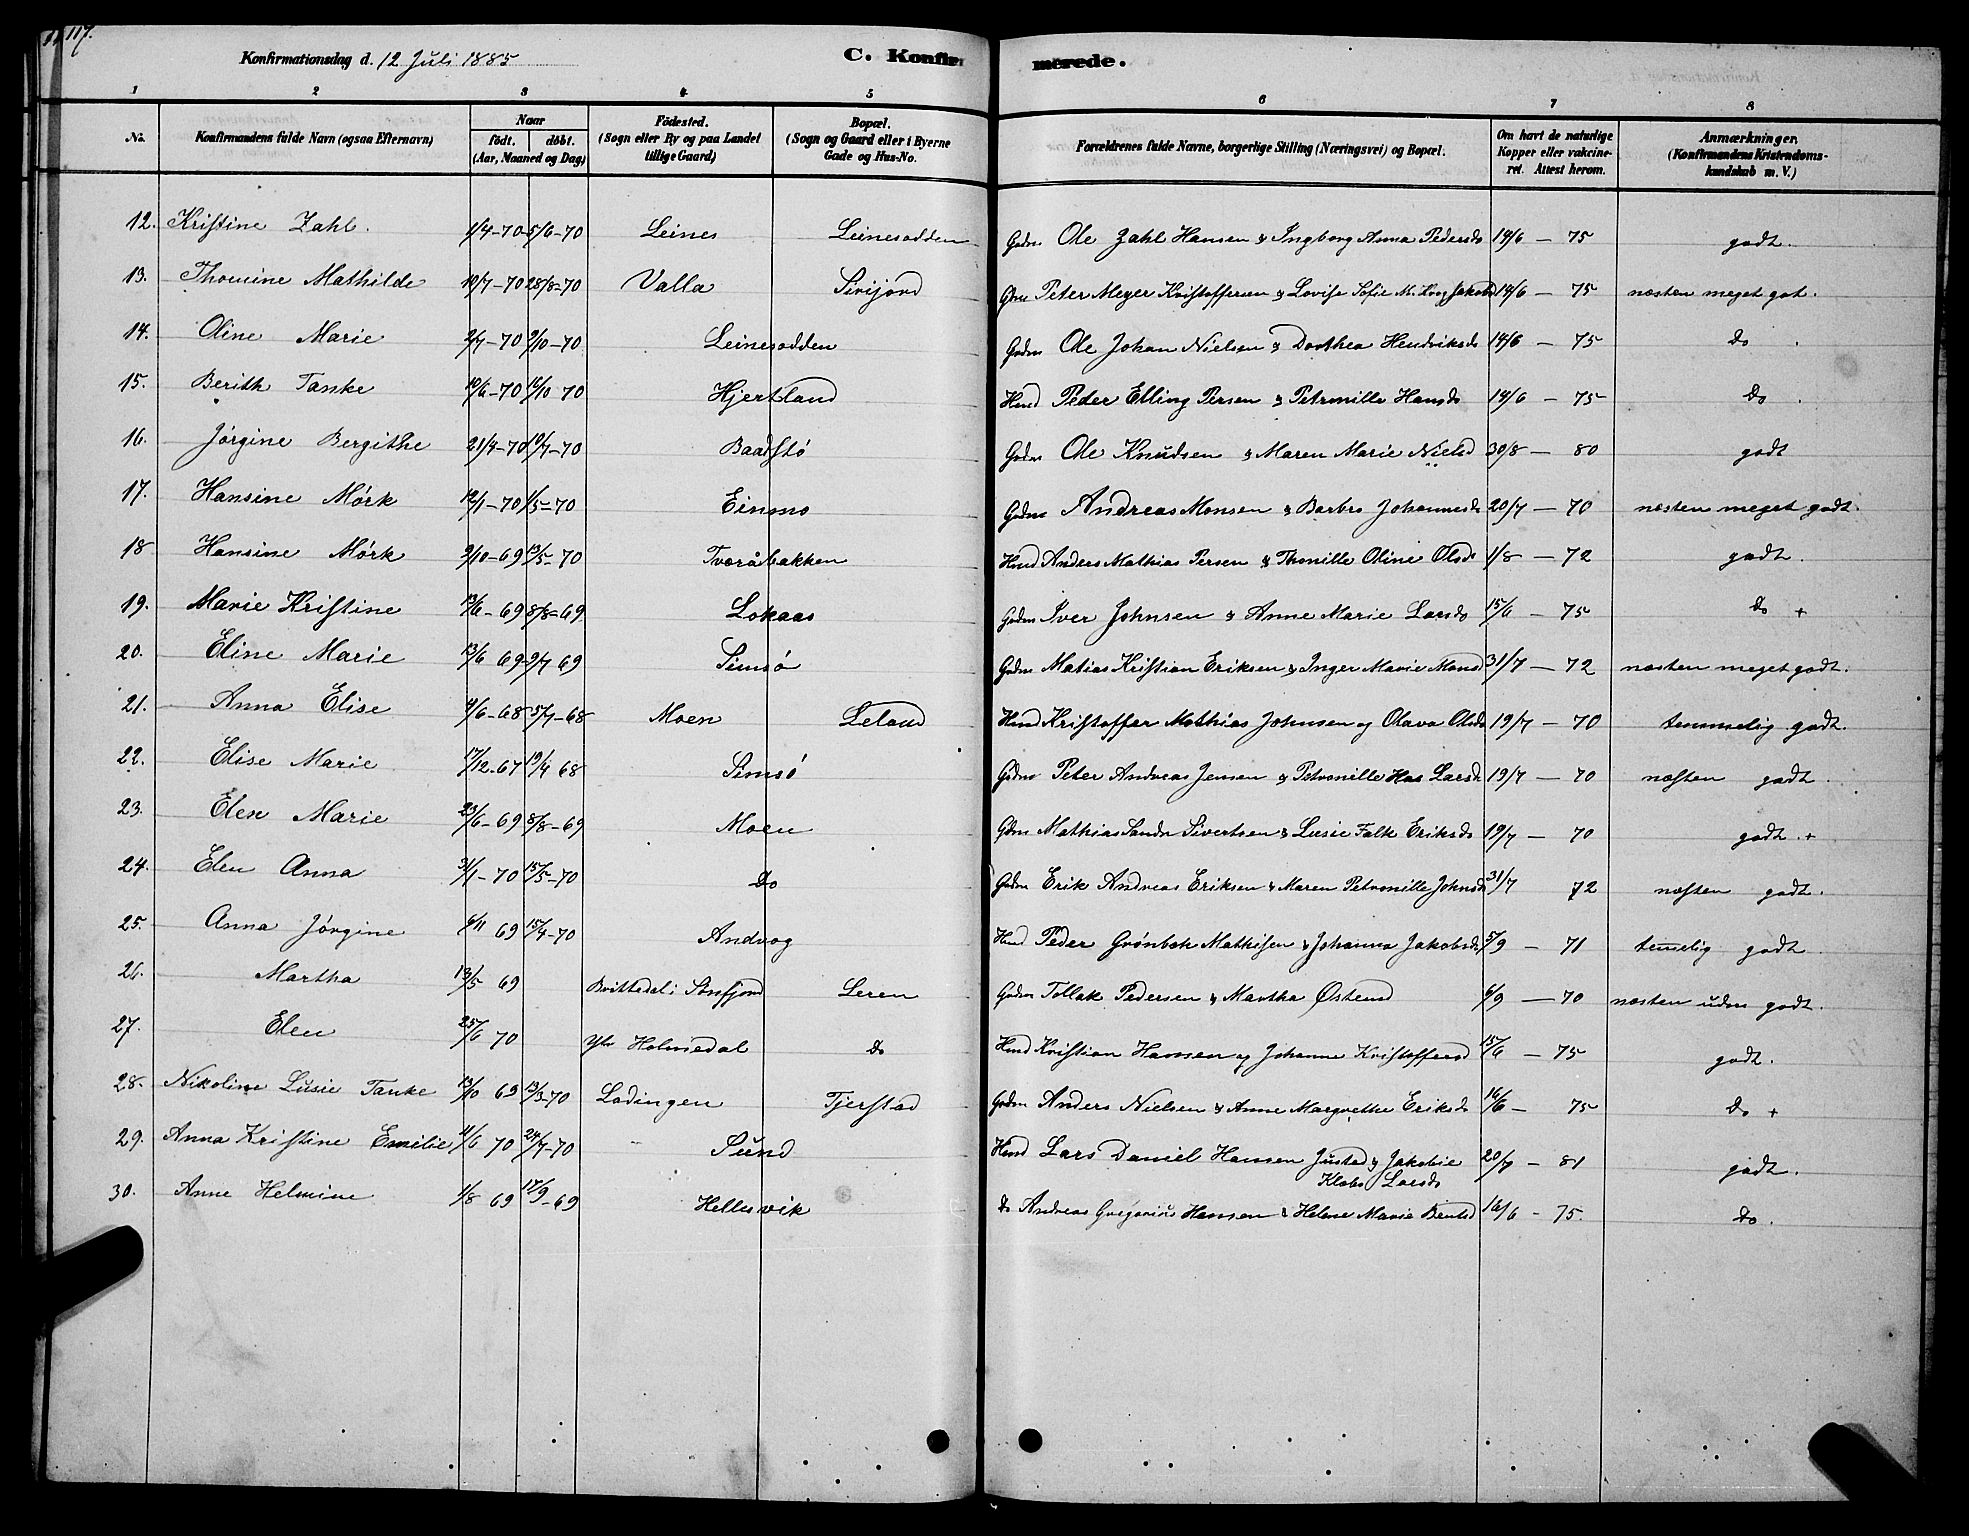 117.
Konfirmationsdag d. 12 Juli 1885
C. Konfirmerede.
1 2 3 4 5 6 7 8
No. Konfirmandens fulde Navn (ogsaa Efternavn) Naar født. døbt. (Aar, Maaned og Dag) Fødested. (Sogn eller By og paa Landet tillige Gaard) Bopæl. (Sogn og Gaard eller i Byerne Gade og Hus-No. Forældrenes fulde Navne, borgerlige Stilling (Næringsvei) og Bopæl. Om havt de naturlige Kopper eller vakcineret. Attest herom. Anmærkninger. (Konfirmandens Kristendomskundskab m. V.)
12. Kristine Zahl. 1/4-70 5/6-70 Leines Leinesodden Gdm Ole Zahl Hansen & Ingborg Anna Pedersd 14/6 — 75 godt.
13. Thomine Mathilde 10/7-70 28/8-70 Valla Sirijord Gdm Peter Meyer Kristoffersen & Lovise Sofie M. Krog Jakobsd 14/6 — 75 næsten meget got.
14. Oline Marie 2/7-70 9/10-70 Leinesodden Gdm Ole Johan Nielsen & Dorthea Hendriksd 14/6 — 75 Do
15. Berith Tanke 10/6-70 16/10 70 Hjertland Hmd Peder Elling Persen & Petronille Hansd 14/6 — 75 Do
16. Jørgine Bergithe 21/4-70 10/7-70 Baadstø Gdm Ole Knudsen & Maren Marie Nielsd 30/8 — 80 godt
17. Hansine Mørk 12/1-70 1/5-70 Einmo Gdm Andreas Monsen & Barbro Johannesd 20/7 — 70 næsten meget godt.
18 Hansine Mørk 9/10-69 13/5-70 Tværåbakken Hmd Anders Mathias Persen & Thonille Oline Olsd 1/8 — 72 godt.
19. Marie Kristine 13/6-69 8/8-69 Lokaas Gdm Iver Johnsen & Anne Marie Larsd 15/6 — 75 Do +
20. Eline Marie 13/6 69 9/7 69 Simsø Gdm Matias Kristian Eriksen & Inger Marie Monsd 31/7 — 72 næsten meget godt.
21. Anna Elise 4/6-68 5/7-68 Moen Leland Hmd Kristoffer Mathias Johnsen og Olava Olsd 19/7 — 70 temmelig godt.
22. Elise Marie 17/12-67 19/4 68 Simsø Gdm Peter Andreas Jensen & Petronille Larsd 19/7 — 70 næsten godt.
23. Elen Marie 23/6-69 8/8-69 Moen Gdm Mathias Sandn Sivertsen & Lusie Falk Eriksd 19/7 — 70 godt. +
24. Elen Anna 31/1-70 15/5-70 Do Gdm Erik Andreas Eriksen & Maren Petronille Johnsd 31/7 72 næsten godt.
25. Anna Jørgine 6/11 69 15/4-70 Andvog Hmd Peder Grønbek Mathisen & Johanna Jakobsd 5/9 — 71 temelig godt.
26. Martha 13/5 69 Søndfjord Leren Gdm Tollak Pedersen & Martha Østensd 6/9 — 70 næsten uden godt.
27. Elen 25/6 70 Ytr Holmedal Do Hmd Kristian Hansen og Johanne Kristoffersd 15/6 — 75 godt.
28. Nikoline Lusie Tanke 13/10 69 13/3-70 Lødingen Tjerstad Gdm Anders Nielsen & Anne Margrethe Eriksd 16/6 — 75 Do +
29. Anna Kristine Emilie 11/6 70 24/7-70 Sund Hmd Lars Daniel Hansen Justad & Jakobie 20/7 — 81 godt.
Klabo Larsd
30. Anne Helmine 1/8 69 17/9-69 Hellesvik Do Andreas Gregorius Hansen & Helene Marie Bentsd 16/6 - 75. Do.